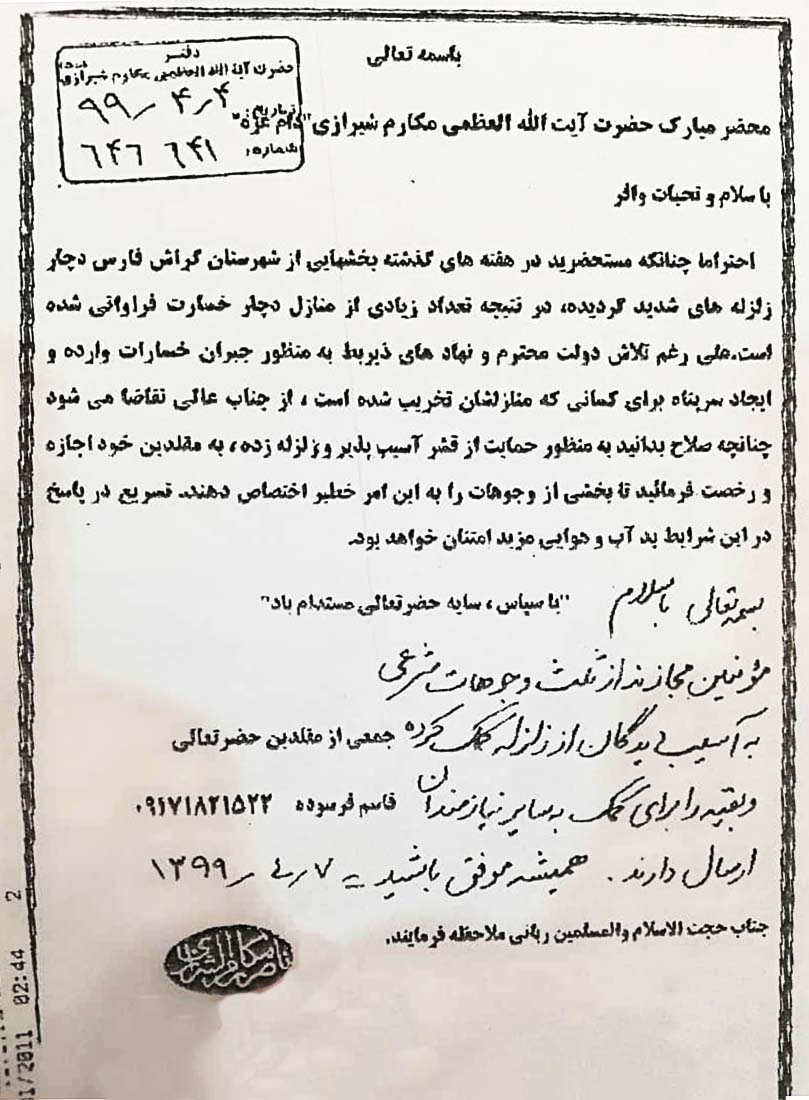 باسمه تعالی
دفتر
حضرت آیة الله العظمی مکارم شیرازی
تاریخ: ۹۹٫۴٫۴
شماره: ۶۴۶ ۶۴۱
محضر مبارک حضرت آیت الله العظمی مکارم شیرازی"دام عزه"
با سلام و تحیات وافر
احتراما چنانکه مستحضرید در هفته های گذشته بخشهایی از شهرستان گراش فارس دچار
زلزله های شدید گردیده، در نتیجه تعداد زیادی از منازل دچار خسارت فراوانی شده
است.علی رغم تلاش دولت محترم و نهاد های ذیربط به منظور جبران خسارات وارده و
ایجاد سرپناه برای کسانی که منازلشان تخریب شده است ، از جناب عالی تقاضا می شود
چنانچه صلاح بدانید به منظور حمایت از قشر آسیب پذیر و زلزله زده، به مقلدین خود اجازه
و رخصت فرمائید تا بخشی از وجوهات را به این امر خطیر اختصاص دهند. تسریع در پاسخ
در این شرایط بد آب و هوایی مزید امتنان خواهد بود.
"با سپاس ، سایه حضرتعالی مستدام باد"
بسمه تعالی با سلام
مؤمنین مجازند از ثلث وجوهات شرعی
به آسیب دیدگان از زلزله کمک کرده
جمعی از مقلدین حضرتعالی
و بقیه را برای کمک به سایر نیازمندان
قاسم فرسوده ۰۹۱۷۱۸۲۱۵۲۲
ارسال دارند. همیشه موفق باشید = ۱۳۹۹٫۴٫۷
جناب حجت الاسلام والمسلمین ربانی ملاحظه فرمایند.
ناصر مکارم الشیرازی
1/2011 02:44 2